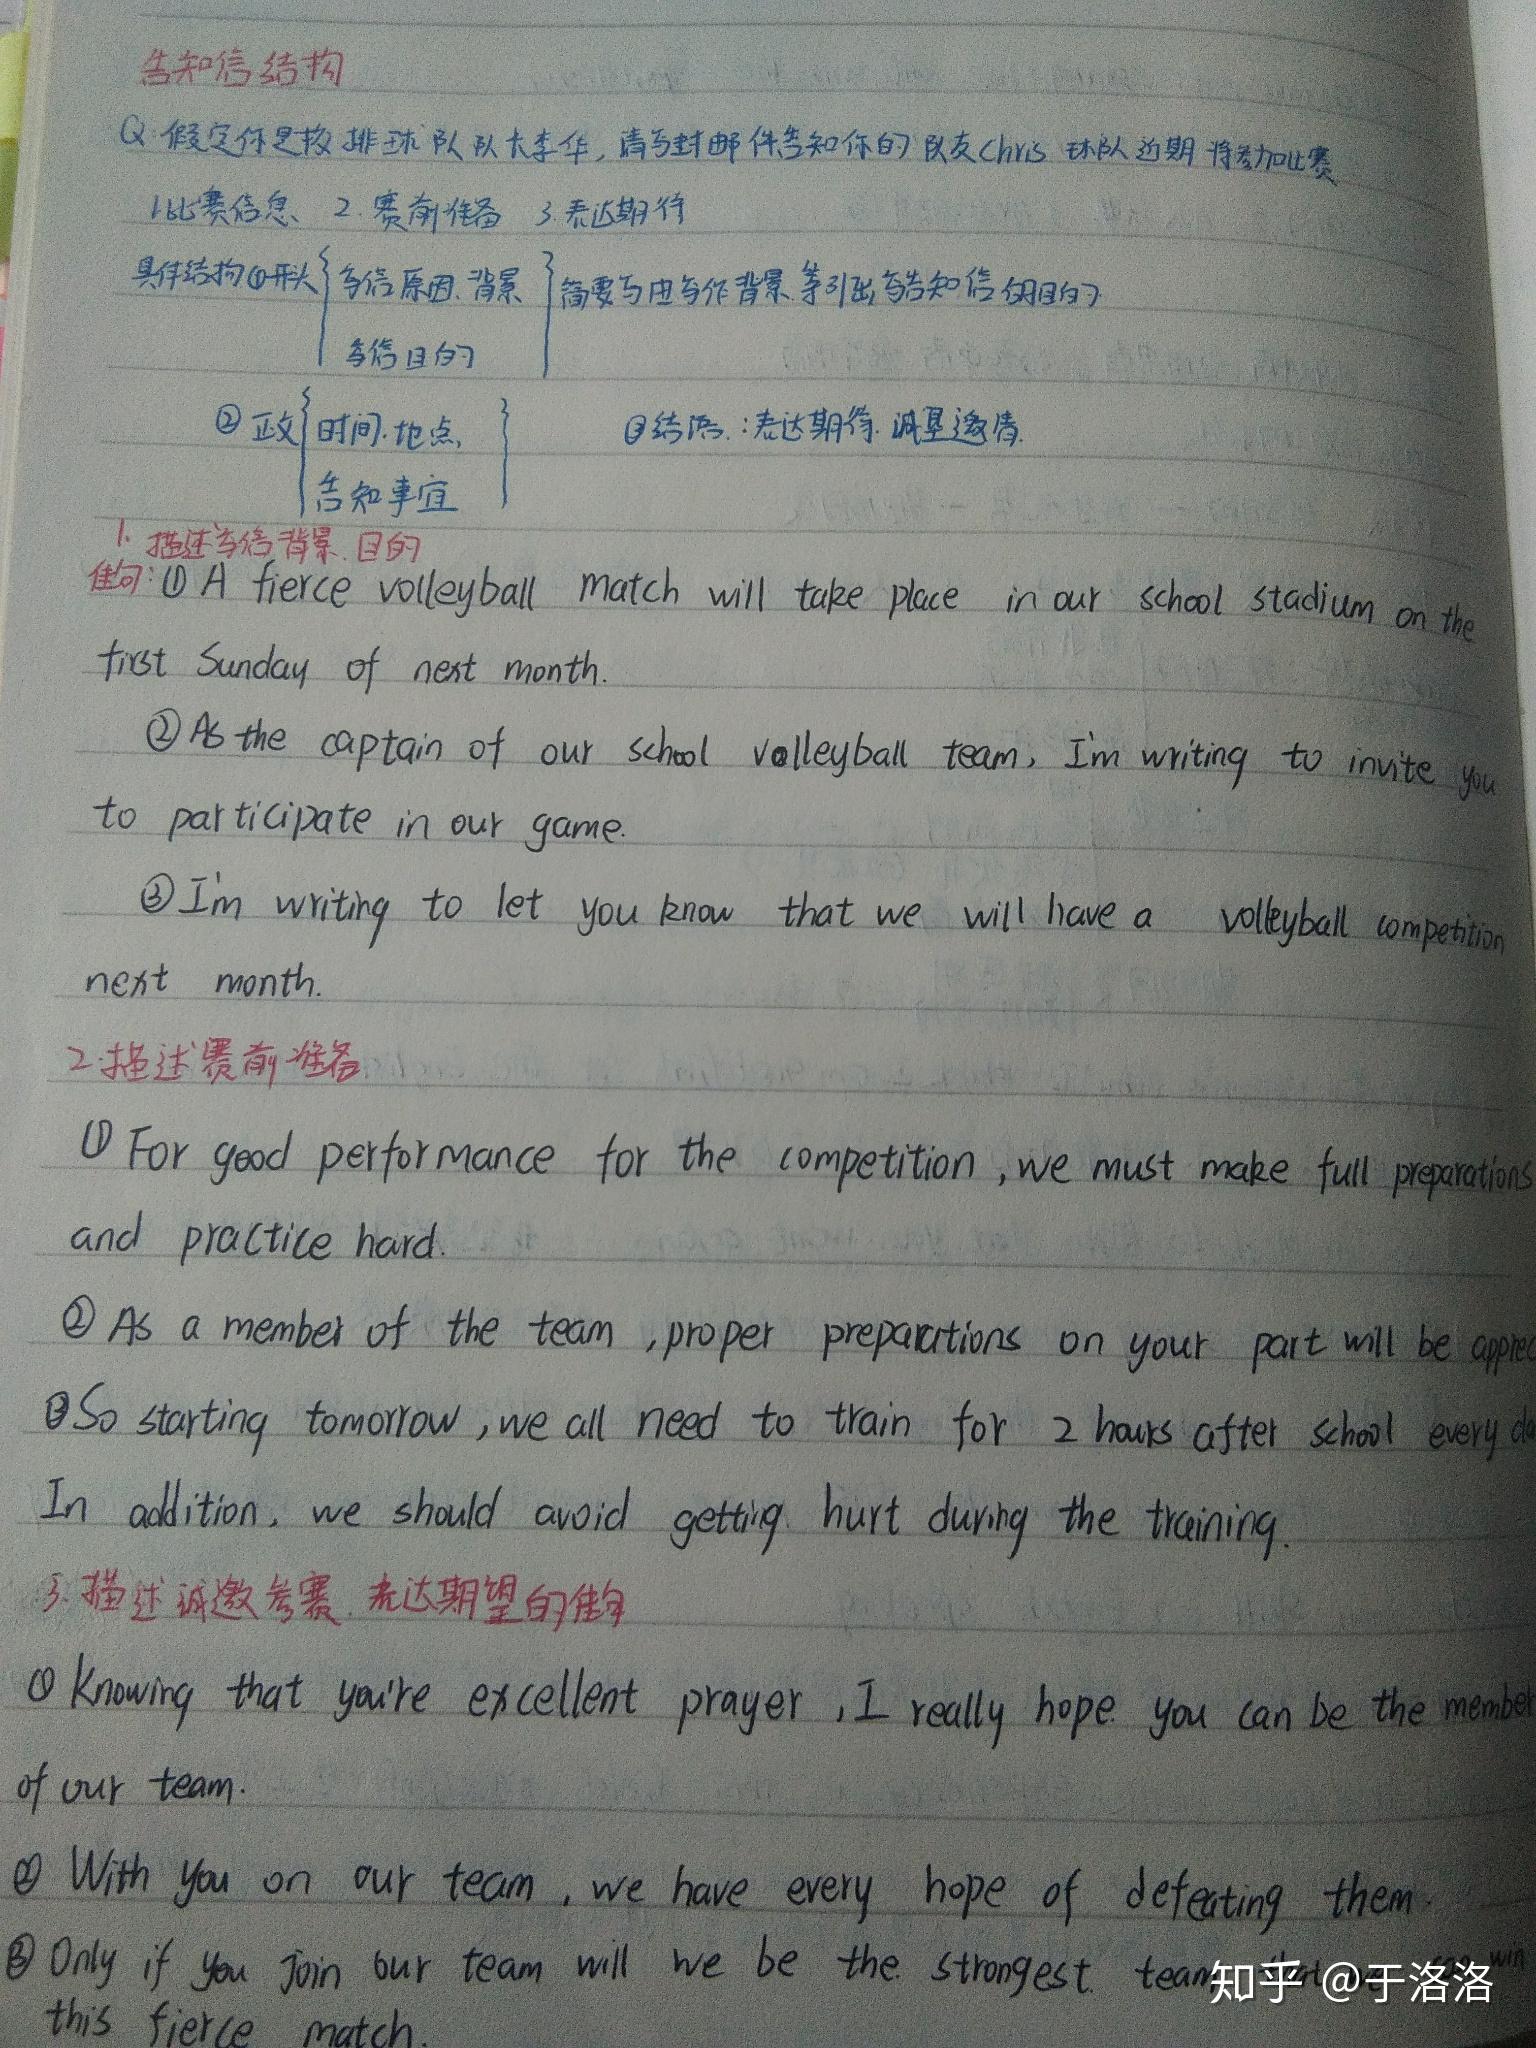 告知信结构
Q:假定你是校排球队队长李华,请写封邮件告知你的队友Chris 球队近期将参加比赛
1.比赛信息 2.赛前准备 3.表达期待
具体结构①开头{写信原因.背景 }简要写由写作背景等引出写告知信的目的
写信目的
②正文{时间.地点, } ③结语:表达期待.诚垦邀请.
告知事宜
1.描述写信背景.目的
佳句:①A fierce volleyball match will take place in our school stadium on the
first Sunday of next month.
②As the captain of our school volleyball team, I'm writing to invite you
to participate in our game.
③I'm writing to let you know that we will have a volleyball competition
next month.
2.描述赛前准备
①For good performance for the competition, we must make full preparations
and practice hard.
②As a member of the team, proper preparations on your part will be
③So starting tomorrow, we all need to train for 2 hours after school every
In addition, we should avoid getting hurt during the training.
3.描述诚邀参赛.表达期望的佳句
①Knowing that you're excellent prayer, I really hope you can be the member
of our team.
②With you on our team, we have every hope of defeating them.
③Only if you join our team will we be the strongest team win
this fierce match.
知乎 @于洛洛